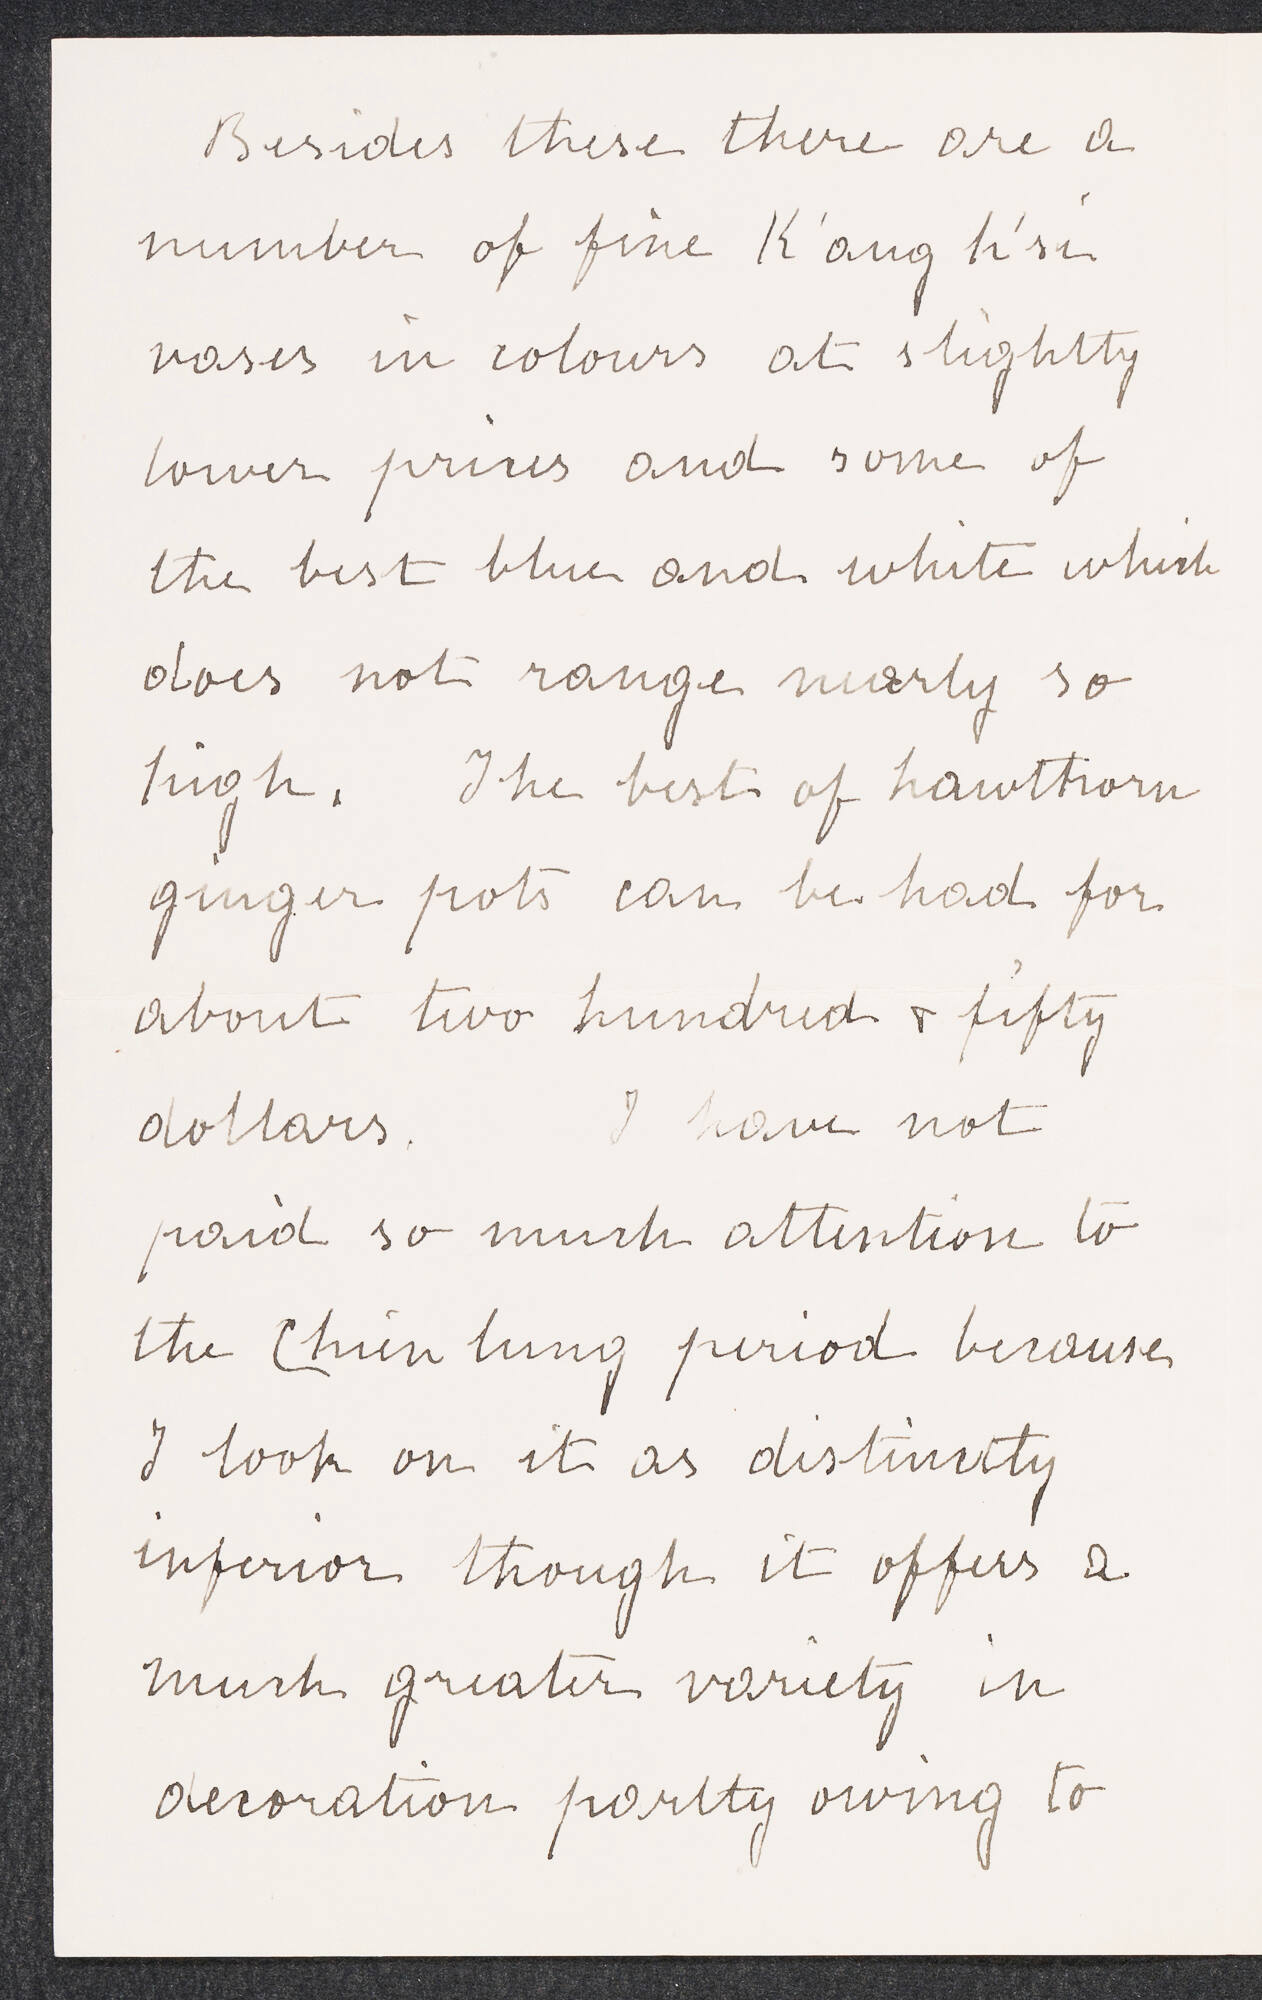 Besides these there are a
number of fine K'ang h'si
vases in colours at slightly
lower prices and some of
the best blue and white which
does not range nearly so
high. The best of hawthorn
ginger pots can be had for
about two hundred & fifty
dollars. I have not
paid so much attention to
the Chien lung period because
I look on it as distinctly
inferior though it offers a
much greater variety in
decoration partly owing to